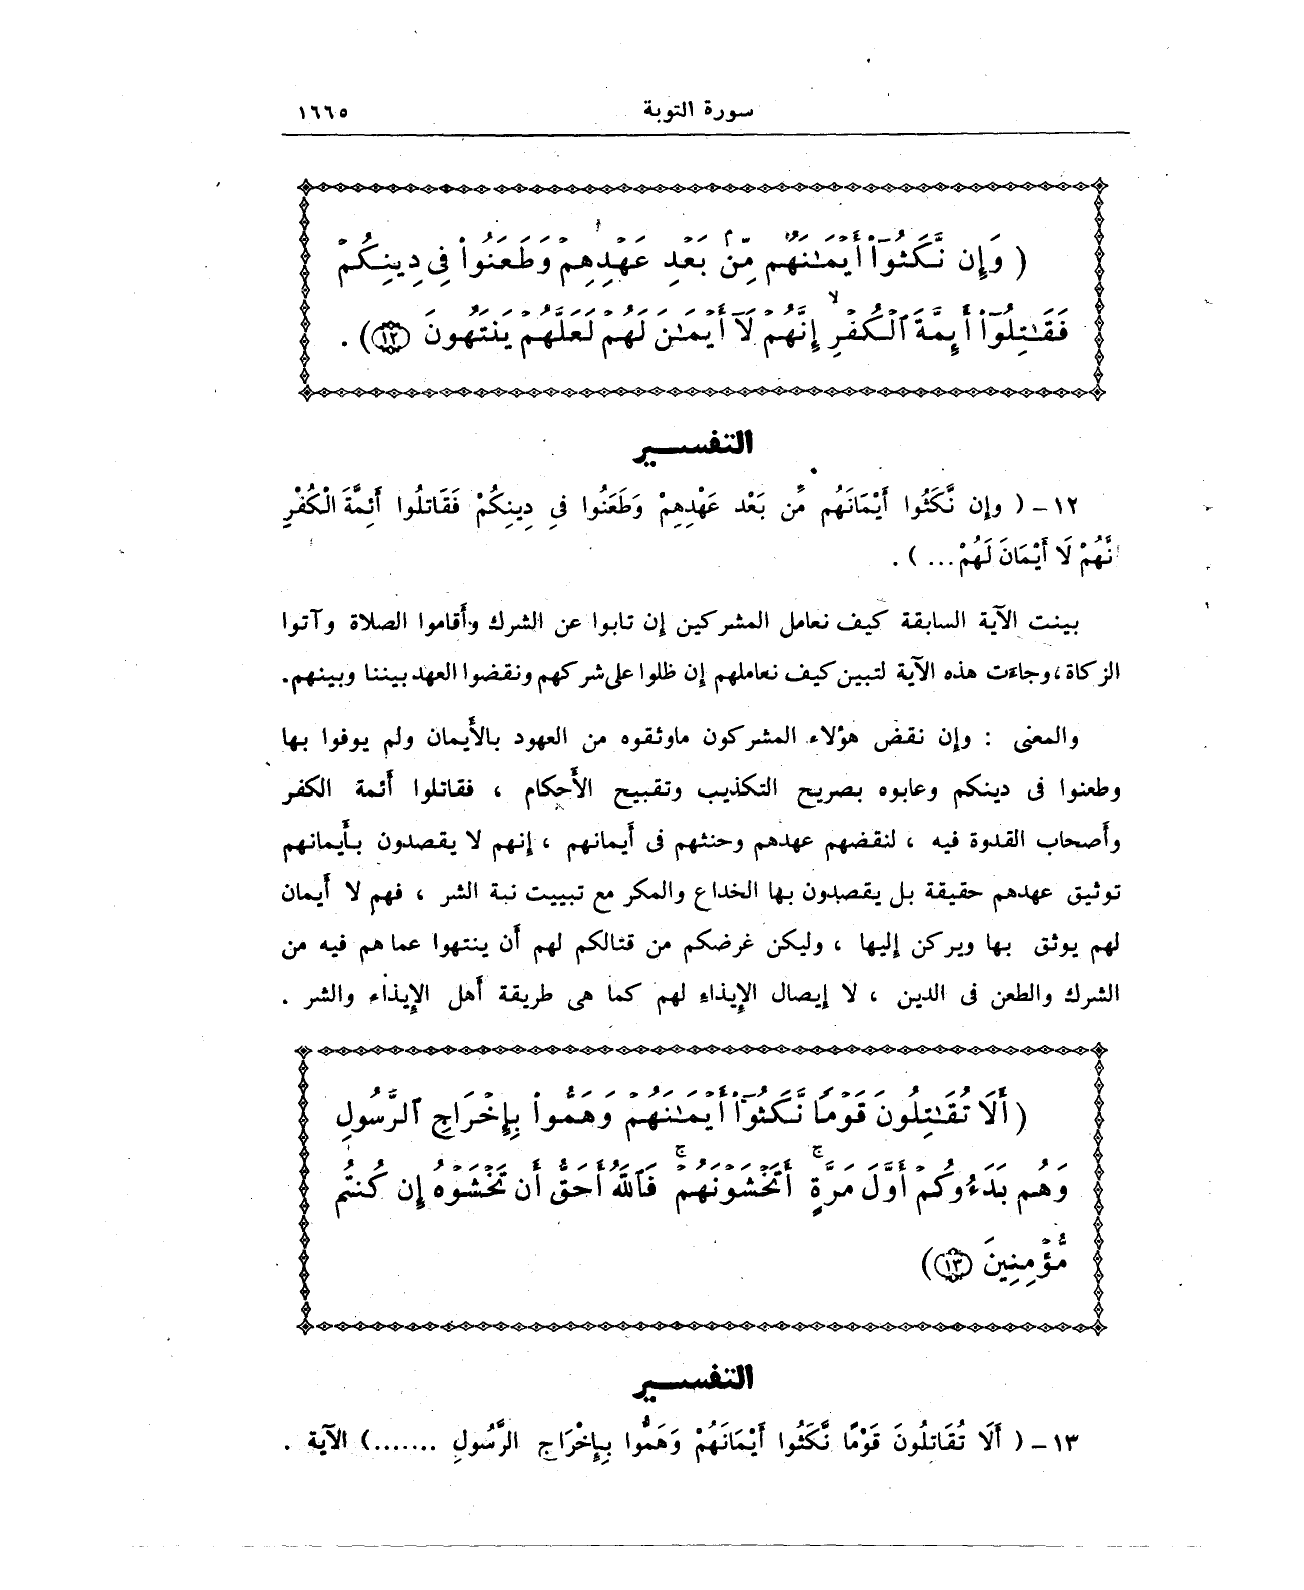 سورة التوبة ١٦٦٥
( وَإِن نَّكَثُوٓا۟ أَيْمَـٰنَهُم مِّنۢ بَعْدِ عَهْدِهِمْ وَطَعَنُوا۟ فِى دِينِكُمْ
فَقَـٰتِلُوٓا۟ أَئِمَّةَ ٱلْكُفْرِ ۙ إِنَّهُمْ لَآ أَيْمَـٰنَ لَهُمْ لَعَلَّهُمْ يَنتَهُونَ (١٢) ) .
التفســـير
١٢ – ( وإن نَّكَثُوا أَيْمَانَهُم مِّن بَعْد عَهْدِهِمْ وَطَعَنُوا فِي دِينِكُمْ فَقَاتلُوا أَئِمَّةَ الْكُفْرِ
نَّهُمْ لَا أَيْمَانَ لَهُمْ ... ) .
بينت الآية السابقة كيف نعامل المشركين إن تابوا عن الشرك وأقاموا الصلاة وآتوا
الزكاة ، وجاءت هذه الآية لتبين كيف نعاملهم إن ظلوا على شركهم ونقضوا العهد بيننا وبينهم.
والمعنى : وإن نقض هؤلاء المشركون ماوثقوه من العهود بالأَيمان ولم يوفوا بها
وطعنوا فى دينكم وعابوه بصريح التكذيب وتقبيح الأَحكام ، فقاتلوا أَئمة الكفر
وأَصحاب القدوة فيه ، لنقضهم عهدهم وحنثهم فى أَيمانهم ، إنهم لا يقصدون بأَيمانهم
توثيق عهدهم حقيقة بل يقصدون بها الخداع والمكر مع تبييت نية الشر ، فهم لا أَيمان
لهم يوثق بها ويركن إليها ، وليكن غرضكم من قتالكم لهم أَن ينتهوا عما هم فيه من
الشرك والطعن فى الدين ، لا إيصال الإِيذاء لهم كما هى طريقة أهل الإِيذاء والشر .
( أَلَا تُقَـٰتِلُونَ قَوْمًا نَّكَثُوٓا۟ أَيْمَـٰنَهُمْ وَهَمُّوا۟ بِإِخْرَاجِ ٱلرَّسُولِ
وَهُم بَدَءُوكُمْ أَوَّلَ مَرَّةٍ ۚ أَتَخْشَوْنَهُمْ ۚ فَٱللَّهُ أَحَقُّ أَن تَخْشَوْهُ إِن كُنتُم
مُّؤْمِنِينَ (١٣) )
التفســـير
١٣ – ( أَلَا تُقَاتلُونَ قَوْمًا نَّكَثُوا أَيْمَانَهُمْ وَهَمُّوا بِإِخْرَاجِ الرَّسُولِ .......) الآية .